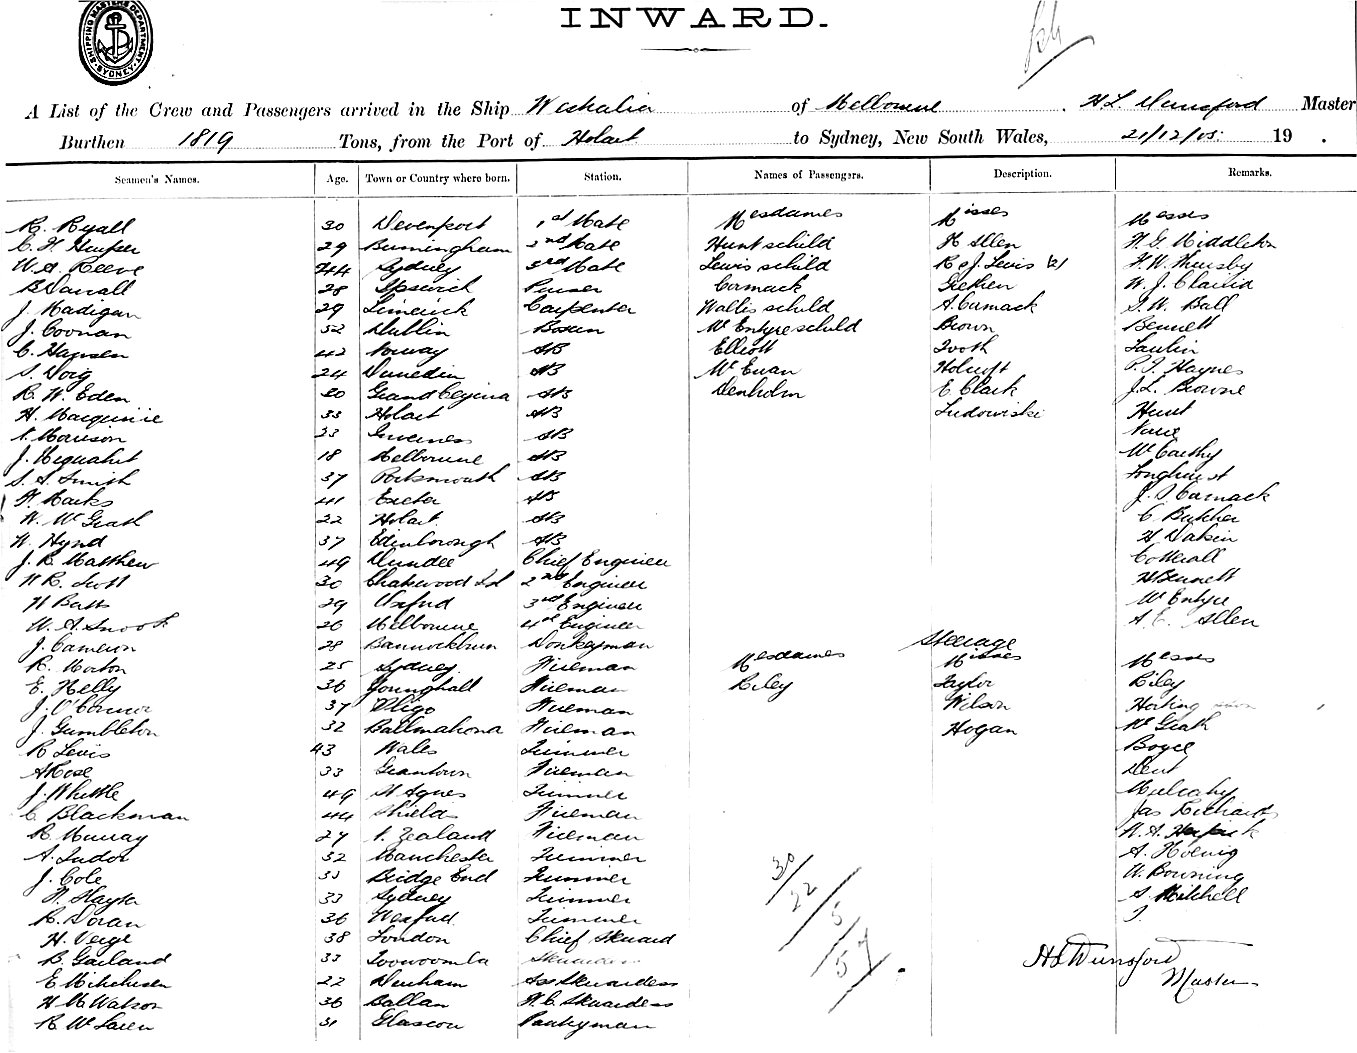 SHIPPING MASTERS DEPARTMENT. SYDNEY.
INWARD.
A List of the Crew and Passengers arrived in the Ship Westralia of Melbourne . H L Dunsford Master
Burthen 1819 Tons, from the Port of Hobart to Sydney, New South Wales, 21/12/05. 19 .
Seamen's Names. Age. Town or Country where born. Station. Names of Passengers. Description. Remarks.
R. Ryall 30 Devenport 1st Mate Mesdames Misses Messrs
C. H. Harper 29 Burmingham 2nd Mate Hunt & child H Allen H. G. Middleton
W. A. Reeve 244 Sydney 3rd Mate Lewis & child R & J. Lewis (2) H. W.
B Darvall 28 Ipswich Purser Cormack W. J.
J. Madigan 29 Limerick Carpenter Wallis & child A. Cormack W. Ball
J. Coonan 32 Dublin Bosun McEntyre & child Brown Bennett
C. Hansen 42 Norway AB Elliott Tooth
S. Doig 24 Dunedin AB McEwan Holcroft P. J. Haynes
R. W. Eden 20 Grand AB Denholm E Clark J. L. Browne
H. Macquinie 33 Hobart AB Ludowiski Hunt
Morrison 23 AB
J. 18 Melbourne AB McCarthy
S. A. Smith 37 Portsmouth AB Longhurst
H. Marks 41 Exeter AB Carmack
W. McGrath 22 Hobart AB C Butcher
W. Hynd 37 Edinborough AB H Dakin
J. R. Matthew 49 Dundee Chief Engineer Cotterall
W R. Scott 30 Chatswood 2nd Engineer H Bennett
H Batts 29 Oxford 3rd Engineer McEntyre
W. A. Snook 26 Melbourne 4th Engineer A. E. Allen
J. Cameron 28 Bannockburn Donkeyman Steerage
R. Morton 25 Sydney Fireman Mesdames Misses Messrs
E. Kelly 36 Younghall Fireman Riley Taylor Riley
J. O'Connor 37 Sligo Fireman Wilson
J. Gumbleton 32 Ballmahona Fireman Hogan McGrath
R Lewis 43 Wales Trimmer Boyce
A Rose 33 Grantown Fireman Dent
J. Whittle 49 St Agnes Trimmer Mulcahy
C Blackman 44 Shields Fireman Jas Richards
R. Murray 27 N. Zealand Fireman
A. Tudor 32 Manchester Trimmer A. Hoenig
J. Cole 33 Bridge End Trimmer W. Browning
H. Hayter 33 Sydney Trimmer S. Mitchell
R. Doran 36 Wexford Trimmer
H. Verge 38 London Chief Steward
B. Garland 33 Toowoomba Stewardess
E Mitchesen 22 Denham Ass Stewardess
H M Watson 36 Ballan F. C. Stewardess
R McLaren 31 Glascow Pantryman
30/
22/
5/
57/
H L Dunsford
Master